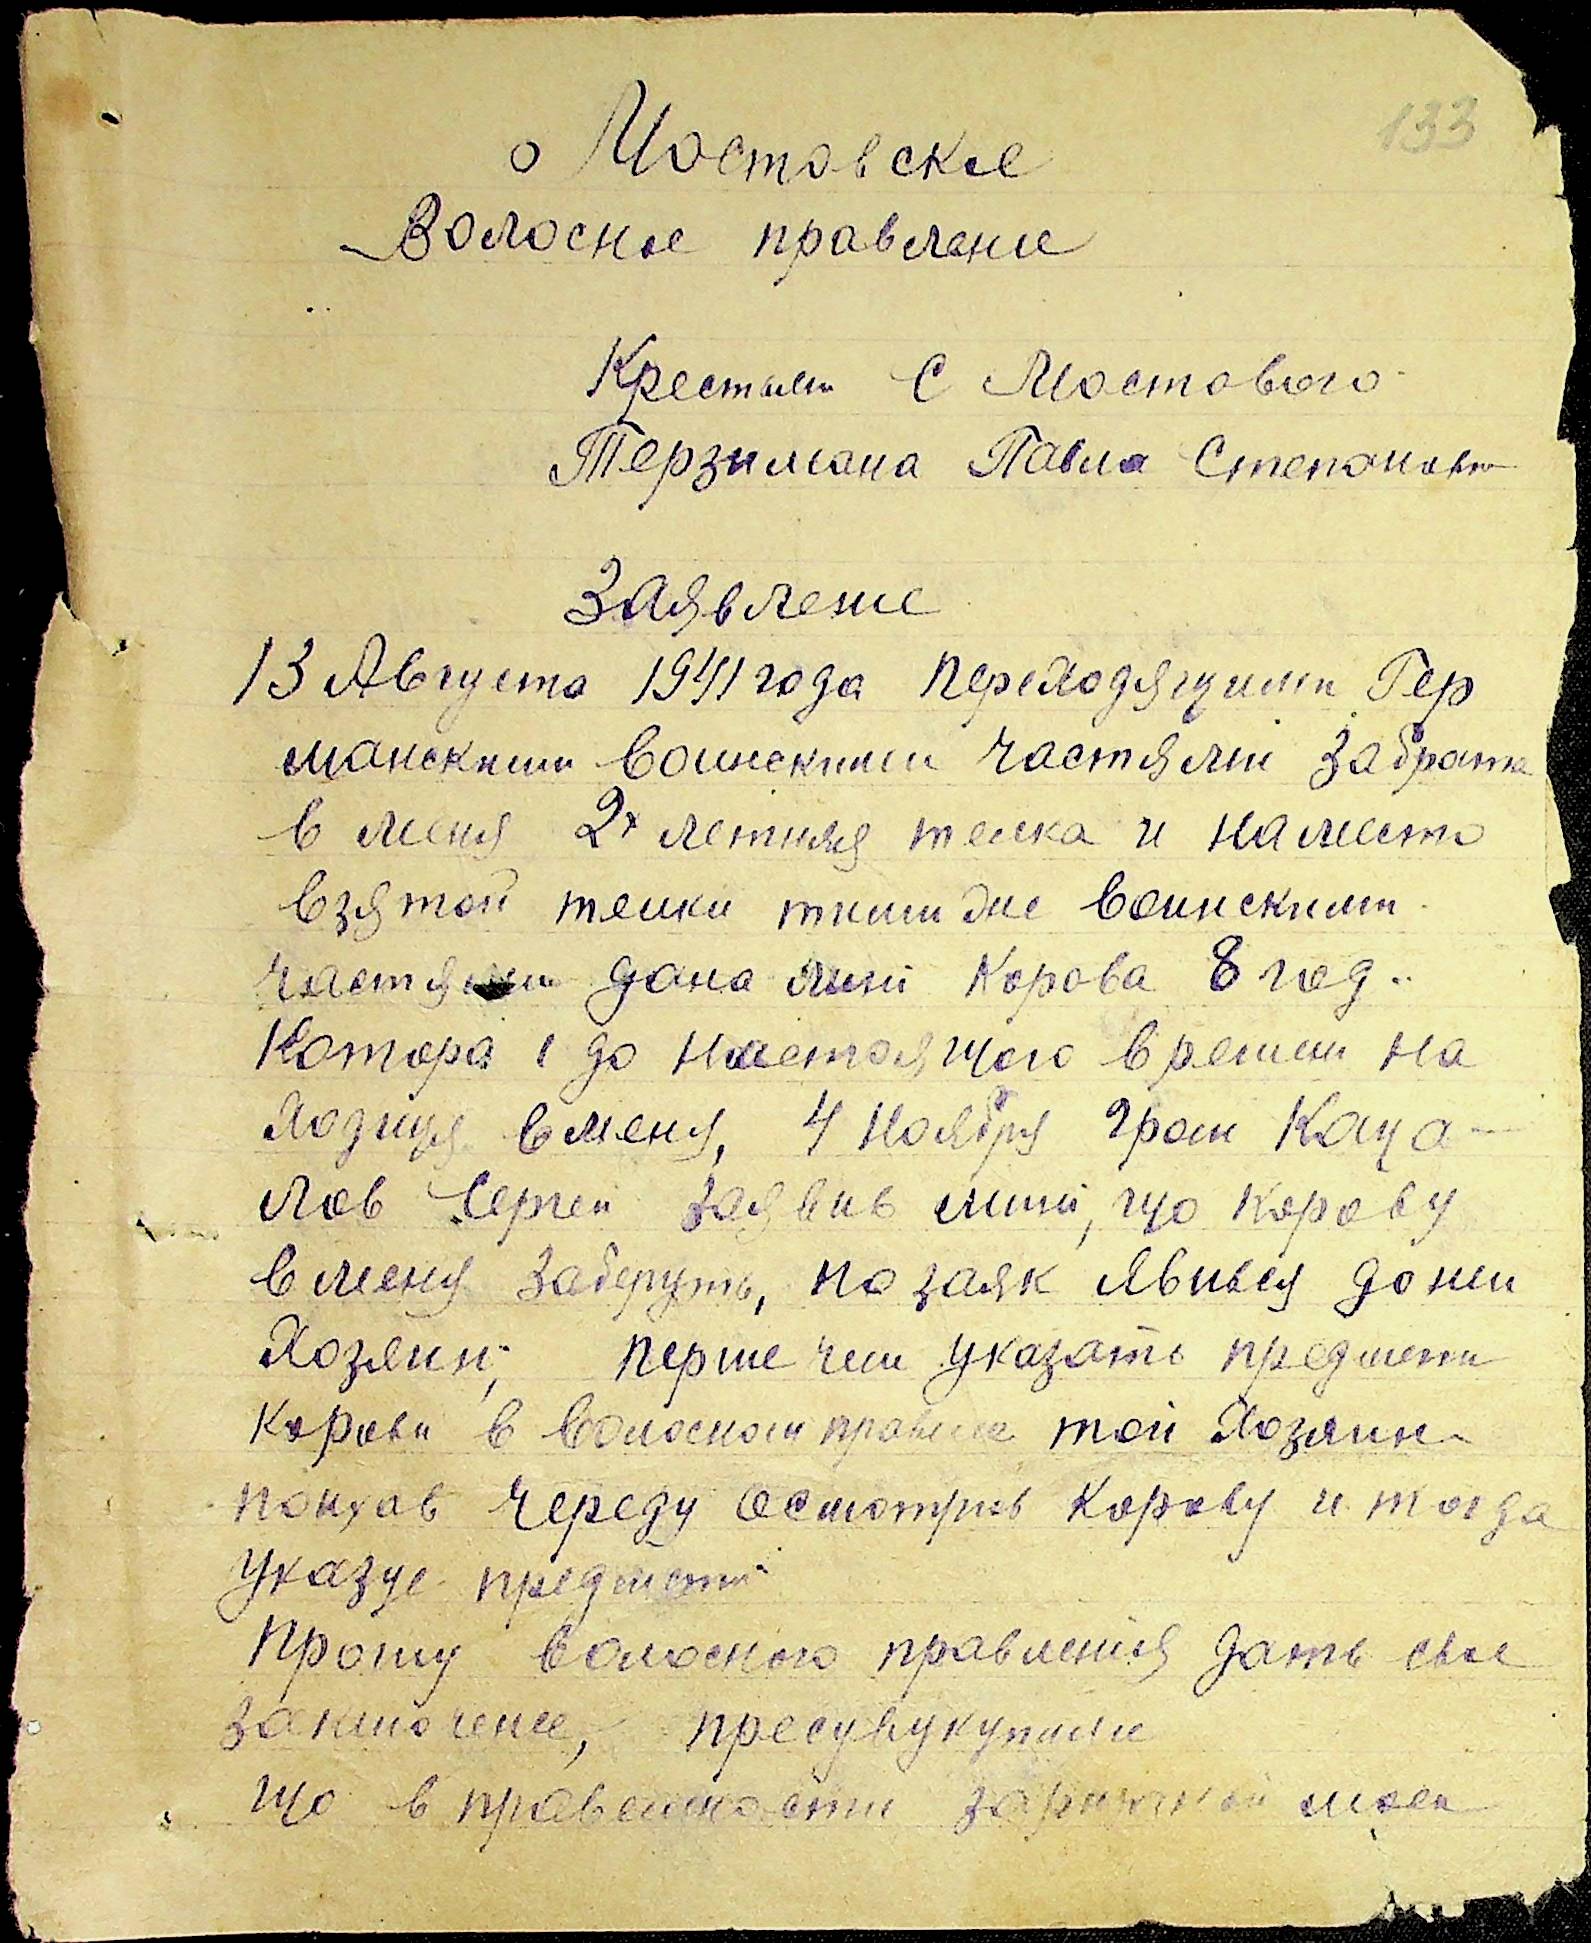 133
о Мостовске
Волосное правлени
Крестьян С Мостового
Терзимана Павла Степанови
Заявление
13 Августа 1941 года переходящими Гер
манскими воинскими частями забрата
в меня 2х летняя телка и на место
взятой телки тими же воинскими
частями дана мині корова 8 год..
Котора і до настоящого времени на
ходиця в меня, 4 Ноября гром Каца-
лов Сергей заявив мині, що корову
в меня заберуть, позаяк явився до неи
Хозяин, перше чем указать предмети
корови в волосном правление той Хозяин
поихав череду осмотрив корову и тогда
указує предмети
Прошу волосного правления дать свое
заключение,
що в правельности зарижной моеи